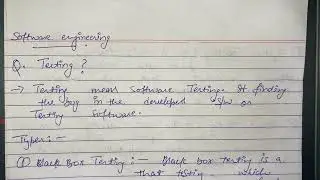 Software engineering
Q. Testing?
→ Testing means Software Testing. It finding
the bug in the developed S/w or
Testing Software.
Types:-
(1) Black Box Testing:- Black box testing is a
that testing which